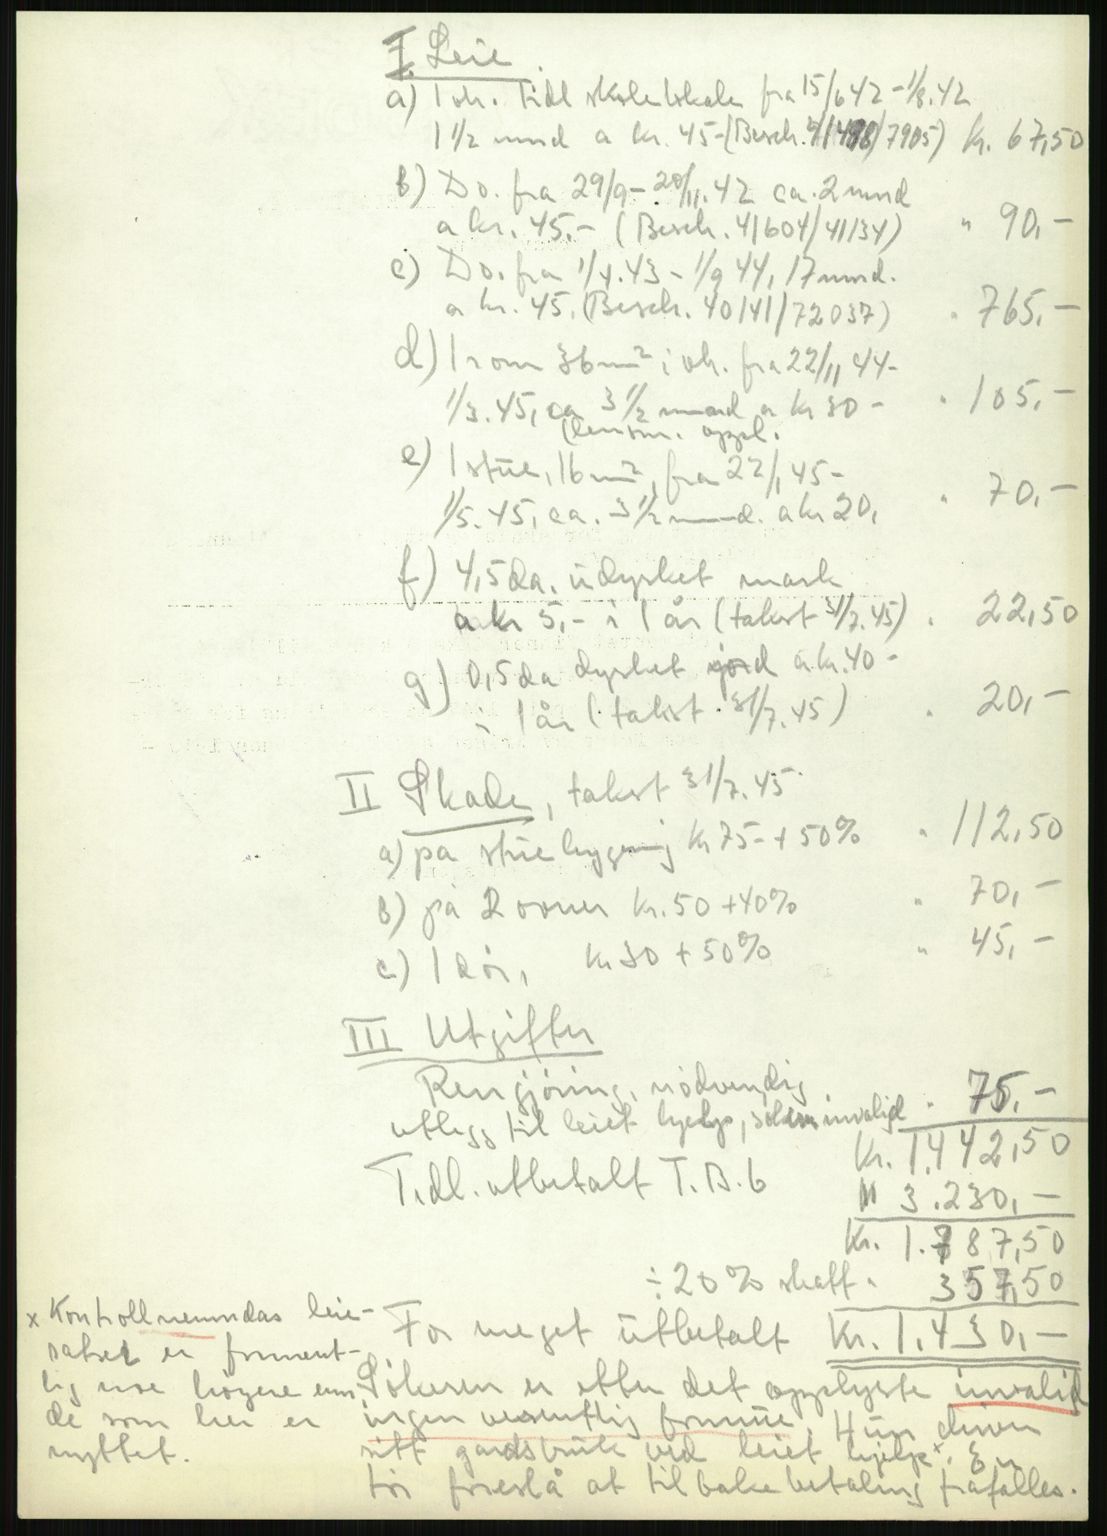 I. Leie.
a) 1 oh. tidl skolelokale fra 15/6 42 - 1/8.42
1 1/2 mnd a kr. 45- (Besch. /7905) kr. 67,50
b) Do. fra 29/9 - 20/11.42 ca. 2 mnd
a kr. 45.- (Besch. 41604/41134) " 90,-
c) Do. fra 1/4.43 - 1/9 44, 17 mnd.
a kr. 45. (Besch. 40141/72037) " 765,-
d) 1 rom 36 m² i oh. fra 22/11 44-
1/3.45, ca 3 1/2 mnd a kr 30 - " 105,-
(lensm. oppl.
e) 1 stue, 16 m², fra 22/1 45-
1/5.45, ca. 3 1/2 mnd. a kr 20, " 70,-
f) 4,5 da. udyrket mark
a kr 5,- i 1 år (takst 31/7.45) " 22,50
g) 0,5 da dyrket jord a kr. 40 -
i 1 år (takst 31/7.45) " 20,-
II Skade, takst 31/7.45
a) på stuebygning kr 75- + 50% " 112,50
b) på 2 ovner kr. 50 + 40% " 70,-
c) 1 dør, kr 30 + 50% " 45,-
III Utgifter
Rengjøring, nødvendig
utlegg til leiet hjelp, invalid " 75,-
Kr. 1.442,50
Tidl. utbetalt T.B. 6 " 3.230,-
Kr. 1.787,50
÷ 20% skatt " 357,50
For meget utbetalt Kr. 1.430,-
x Kontrollnemndas leie-
satser er forment-
lig noe høgere enn
de som her er
nyttet.
Søkeren er etter det opplyste invalid
ingen vesentlig formue. Hun driver
sitt gårdsbruk ved leiet hjelp x. En
tør foreslå at tilbakebetaling frafalles.